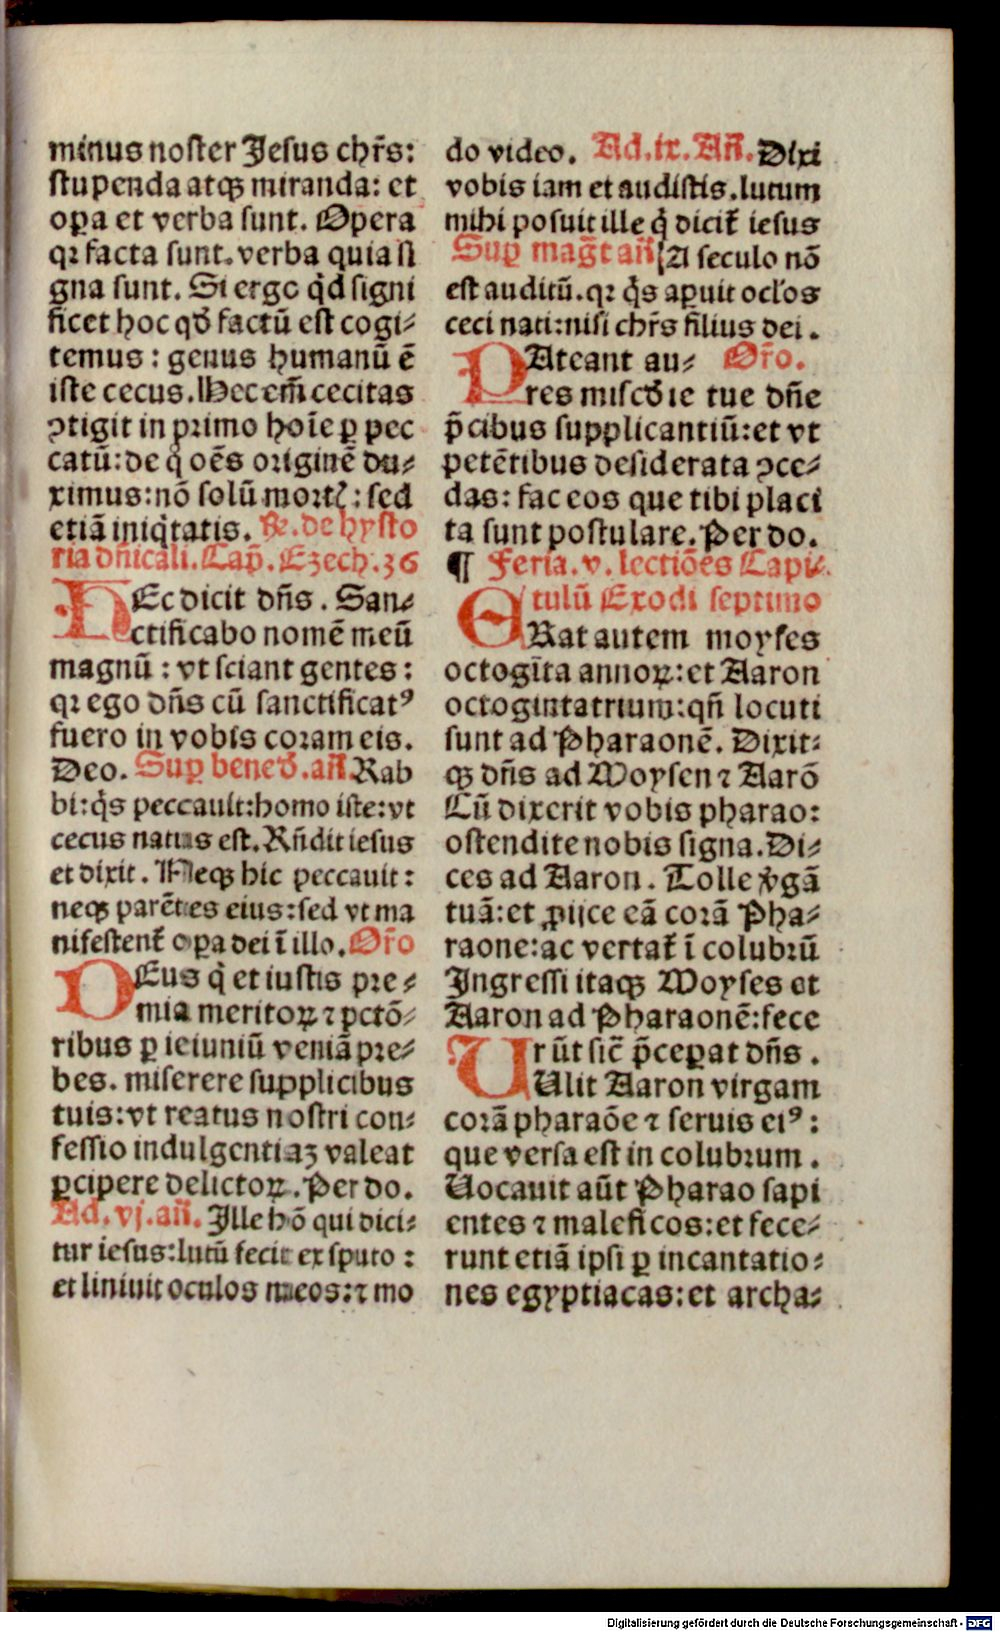 minus noster Jesus chr̄s:
stupenda atqꝫ miranda: et
oꝑa et verba sunt. Opera
qꝛ facta sunt. verba quia si
gna sunt. Si ergo q̇d signi
ficet hoc qď factū est cogi⸗
temus: genus humanū ē
iste cecus. Hec em̄ cecitas
ↄtigit in primo hoīe ꝑ pec
catū: de q̊ oēs originē du⸗
ximus: nō solū mortꝭ: sed
etiā iniq̇tatis. ꝶ. de hysto
ria dn̄icali. Cap̄. Ezech. 36
HEc dicit dn̄s. San⸗
ctificabo nomē meū
magnū: vt sciant gentes:
qꝛ ego dn̄s cū sanctificatꝰ
fuero in vobis coram eis.
Deo. Suꝑ beneď. an̄. Rab
bi: q̇s peccauit: homo iste: vt
cecus natus est. Rn̄dit iesus
et dixit. Neqꝫ hic peccauit:
neqꝫ parētes eius: sed vt ma
nifestent᷑ oꝑa dei ī illo. Or̄o
DEus q̇ et iustis pre⸗
mia meritoꝝ ⁊ pctō⸗
ribus ꝑ ieiuniū veniā pre⸗
bes. miserere supplicibus
tuis: vt reatus nostri con⸗
fessio indulgentiaꝫ valeat
ꝑcipere delictoꝝ. Per do.
Ad. vj. an̄. Ille hō qui dici⸗
tur iesus: lutū fecit ex sputo:
et liniuit oculos meos: ⁊ mo
do video. Ad. ix. An̄. Dixi
vobis iam et audistis. lutum
mihi posuit ille q̇ dicit᷑ iesus
Suꝑ maḡt an̄ A seculo nō
est auditū. qꝛ q̇s aꝑuit ocl'os
ceci nati: nisi chr̄s filius dei.
PAteant au⸗ Or̄o.
res miscďie tue dn̄e
p̄cibus supplicantiū: et vt
petētibus desiderata ↄce⸗
das: fac eos que tibi placi
ta sunt postulare. Per do.
¶ Feria. v. lectiōes Capi⸗
tulū Exodi septimo
ERat autem moyses
octogīta annoꝝ: et Aaron
octogintatrium: qn̄ locuti
sunt ad Pharaonē. Dixit⸗
qꝫ dn̄s ad Moysen ⁊ Aarō
Cū dixerit vobis pharao:
ostendite nobis signa. Di⸗
ces ad Aaron. Tolle v̓gā
tuā: et ꝓijce eā corā Pha⸗
raone: ac vertat᷑ ī colubrū
Ingressi itaqꝫ Moyses et
Aaron ad Pharaonē: fece
r ūt sic̄ p̄ceꝑat dn̄s.
TUlit Aaron virgam
corā pharaōe ⁊ seruis eiꝰ:
que versa est in colubrum.
Uocauit aūt Pharao sapi
entes ⁊ maleficos: et fece⸗
runt etiā ipsi ꝑ incantatio⸗
nes egyptiacas: et archa⸗
Digitalisierung gefördert durch die Deutsche Forschungsgemeinschaft - DFG